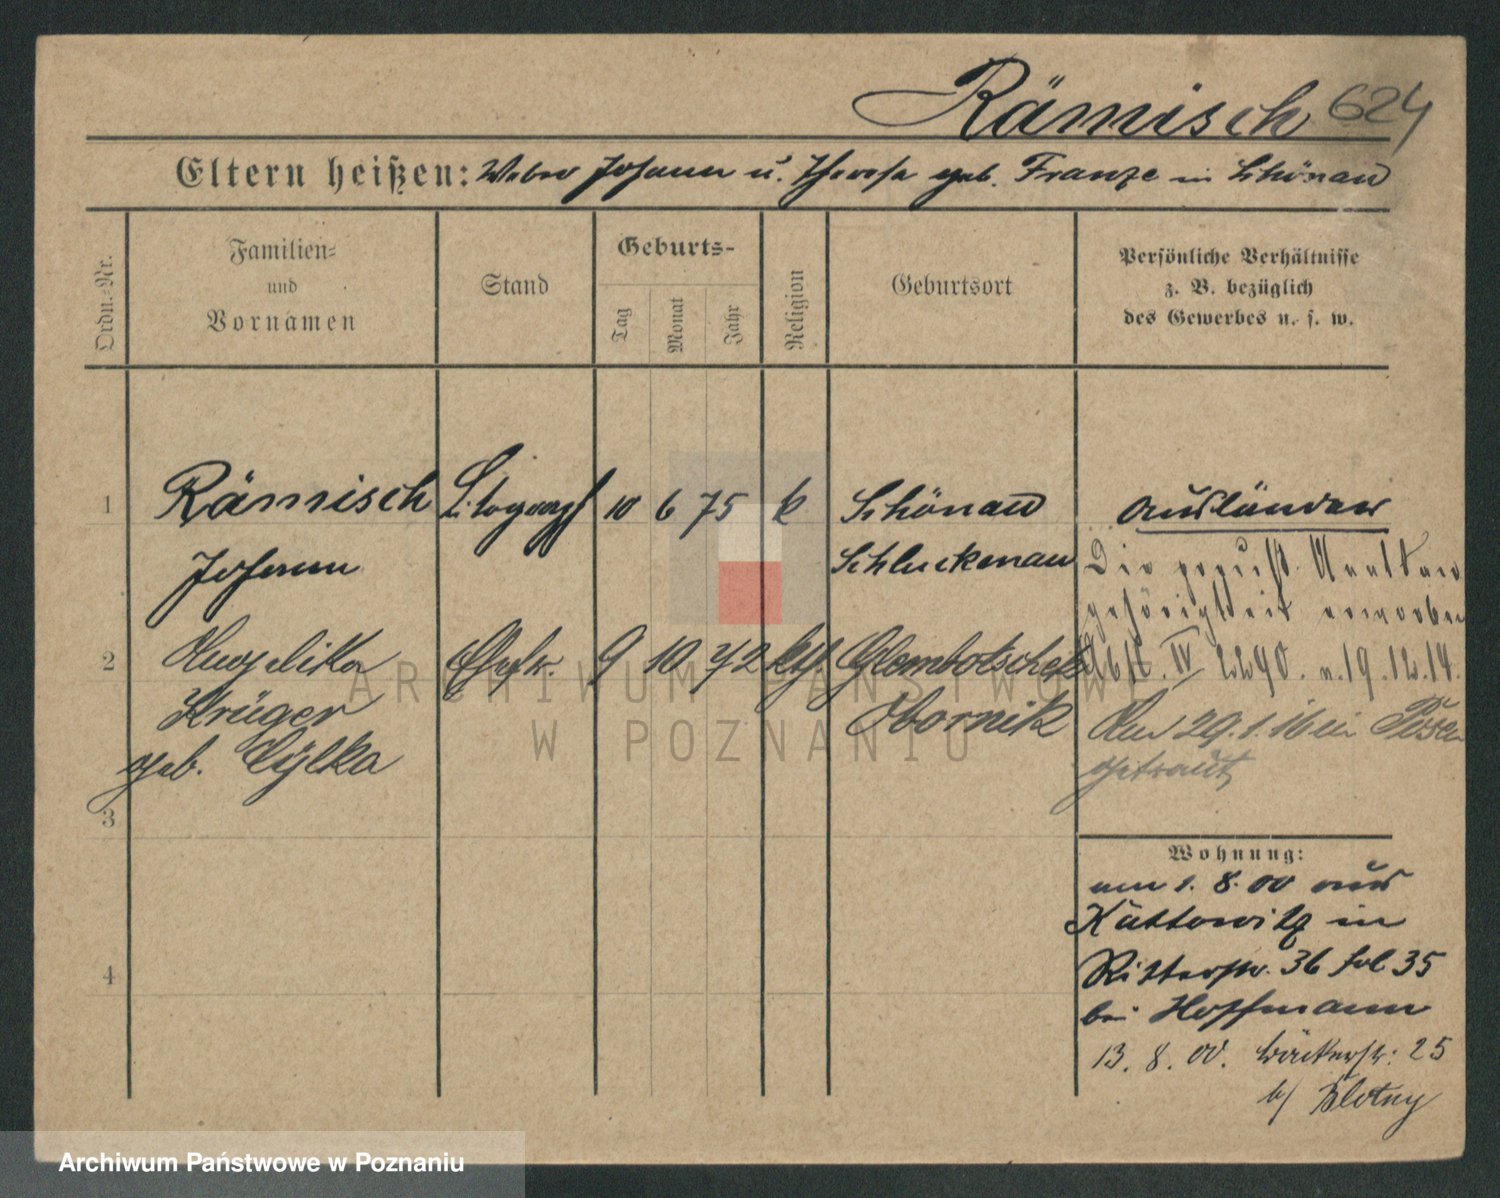 Rämisch 624
Eltern heißen: Weber Johann u. Theresa geb. Franze in Schönau
Ordn.-Nr.
Familien-
und
Vornamen
Stand
Geburts-
Tag
Monat
Jahr
Religion
Geburtsort
Persönliche Verhältnisse
z. B. bezüglich
des Gewerbes u. s. w.
1 Rämisch Litograph 10 6 75 k Schönau Ausländer
Johann Schluckenau
Die preuß. Staatsan
gehörigkeit erworben
2 Angelika 9 10 72 kth Glembotschek IV 2290. v. 19.12.14.
Krüger Obornik Am 29.1.16 in Posen
geb. Cylka getraut
3
4
Wohnung:
am 1. 8. 00 aus
Kattowitz in
Ritterstr. 36 35
bei Hoffmann
13. 8. 00. Bäckerstr: 25
b/ Blotny
ARCHIWUM PAŃSTWOWE
W POZNANIU
Archiwum Państwowe w Poznaniu